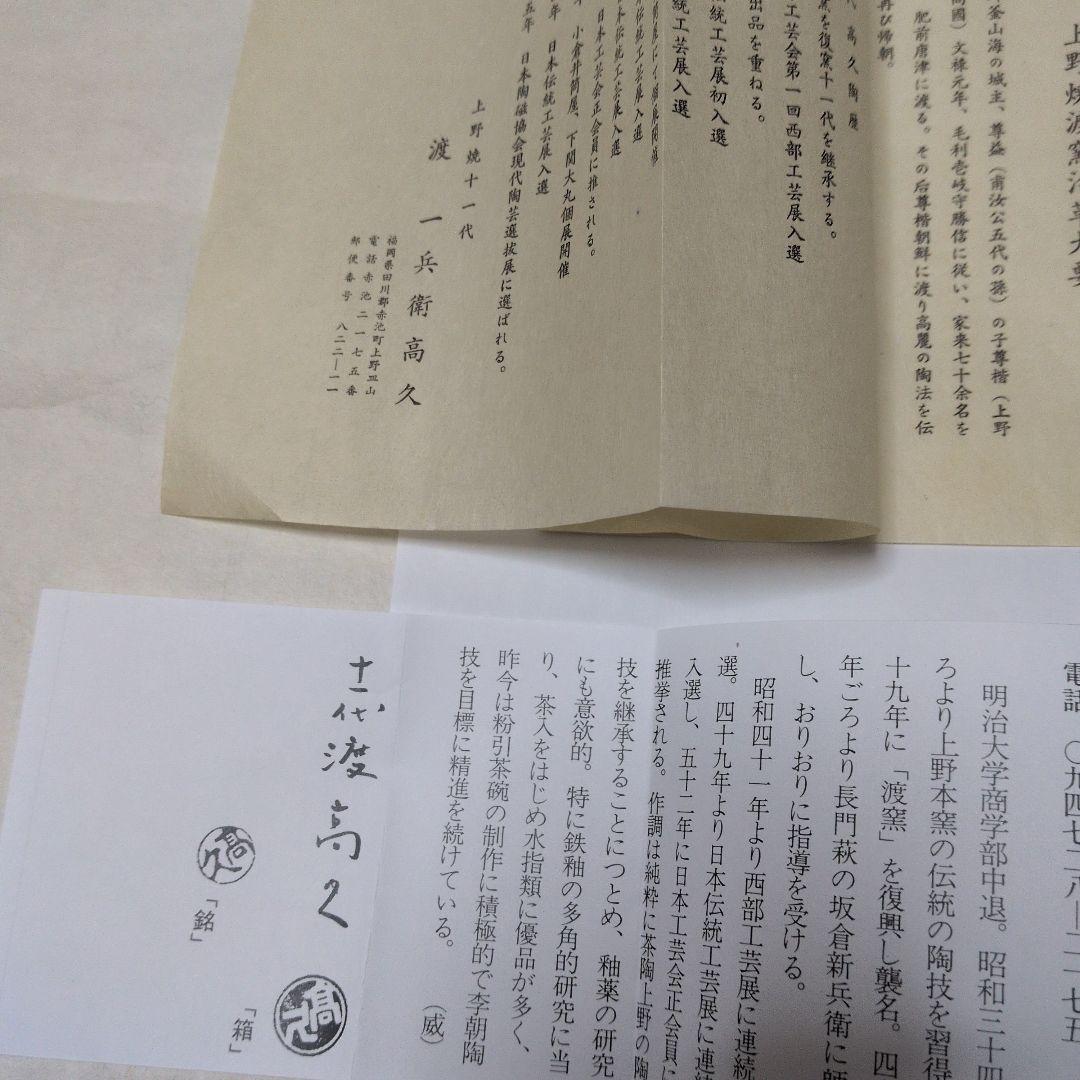 上野焼渡窯沿革大要
釜山海の城主、尊益（甫汝公五代の孫）の子尊楷（上野
国）文禄元年、毛利壱岐守勝信に従い、家来七十余名を
肥前唐津に渡る。その后尊楷朝鮮に渡り高麗の陶法を伝
再び帰朝。
代高久陶歴
窯を復窯十一代を継承する。
工芸会第一回西部工芸展入選
出品を重ねる。
伝統工芸展初入選
統工芸展入選
本伝統工芸展入選
日本工芸会正会員に推される。
小倉井筒屋、下関大丸個展開催
年 日本伝統工芸展入選
五年 日本陶磁協会現代陶芸選抜展に選ばれる。
上野焼十一代
渡 一兵衛高久
福岡県田川郡赤池町上野皿山
電話赤池二一七五番
郵便番号 八二二―一一
電話 〇九四七二―八―二一七五
明治大学商学部中退。昭和三十四
ろより上野本窯の伝統の陶技を習得
十九年に「渡窯」を復興し襲名。四
年ごろより長門萩の坂倉新兵衛に師
し、おりおりに指導を受ける。
昭和四十一年より西部工芸展に連続
選。四十九年より日本伝統工芸展に連続
入選し、五十二年に日本工芸会正会員に
推挙される。作調は純粋に茶陶上野の陶
技を継承することにつとめ、釉薬の研究
にも意欲的。特に鉄釉の多角的研究に当
り、茶入をはじめ水指類に優品が多く、
昨今は粉引茶碗の制作に積極的で李朝陶
技を目標に精進を続けている。 （威）
十一代渡高久
高久
「銘」
高久
「箱」